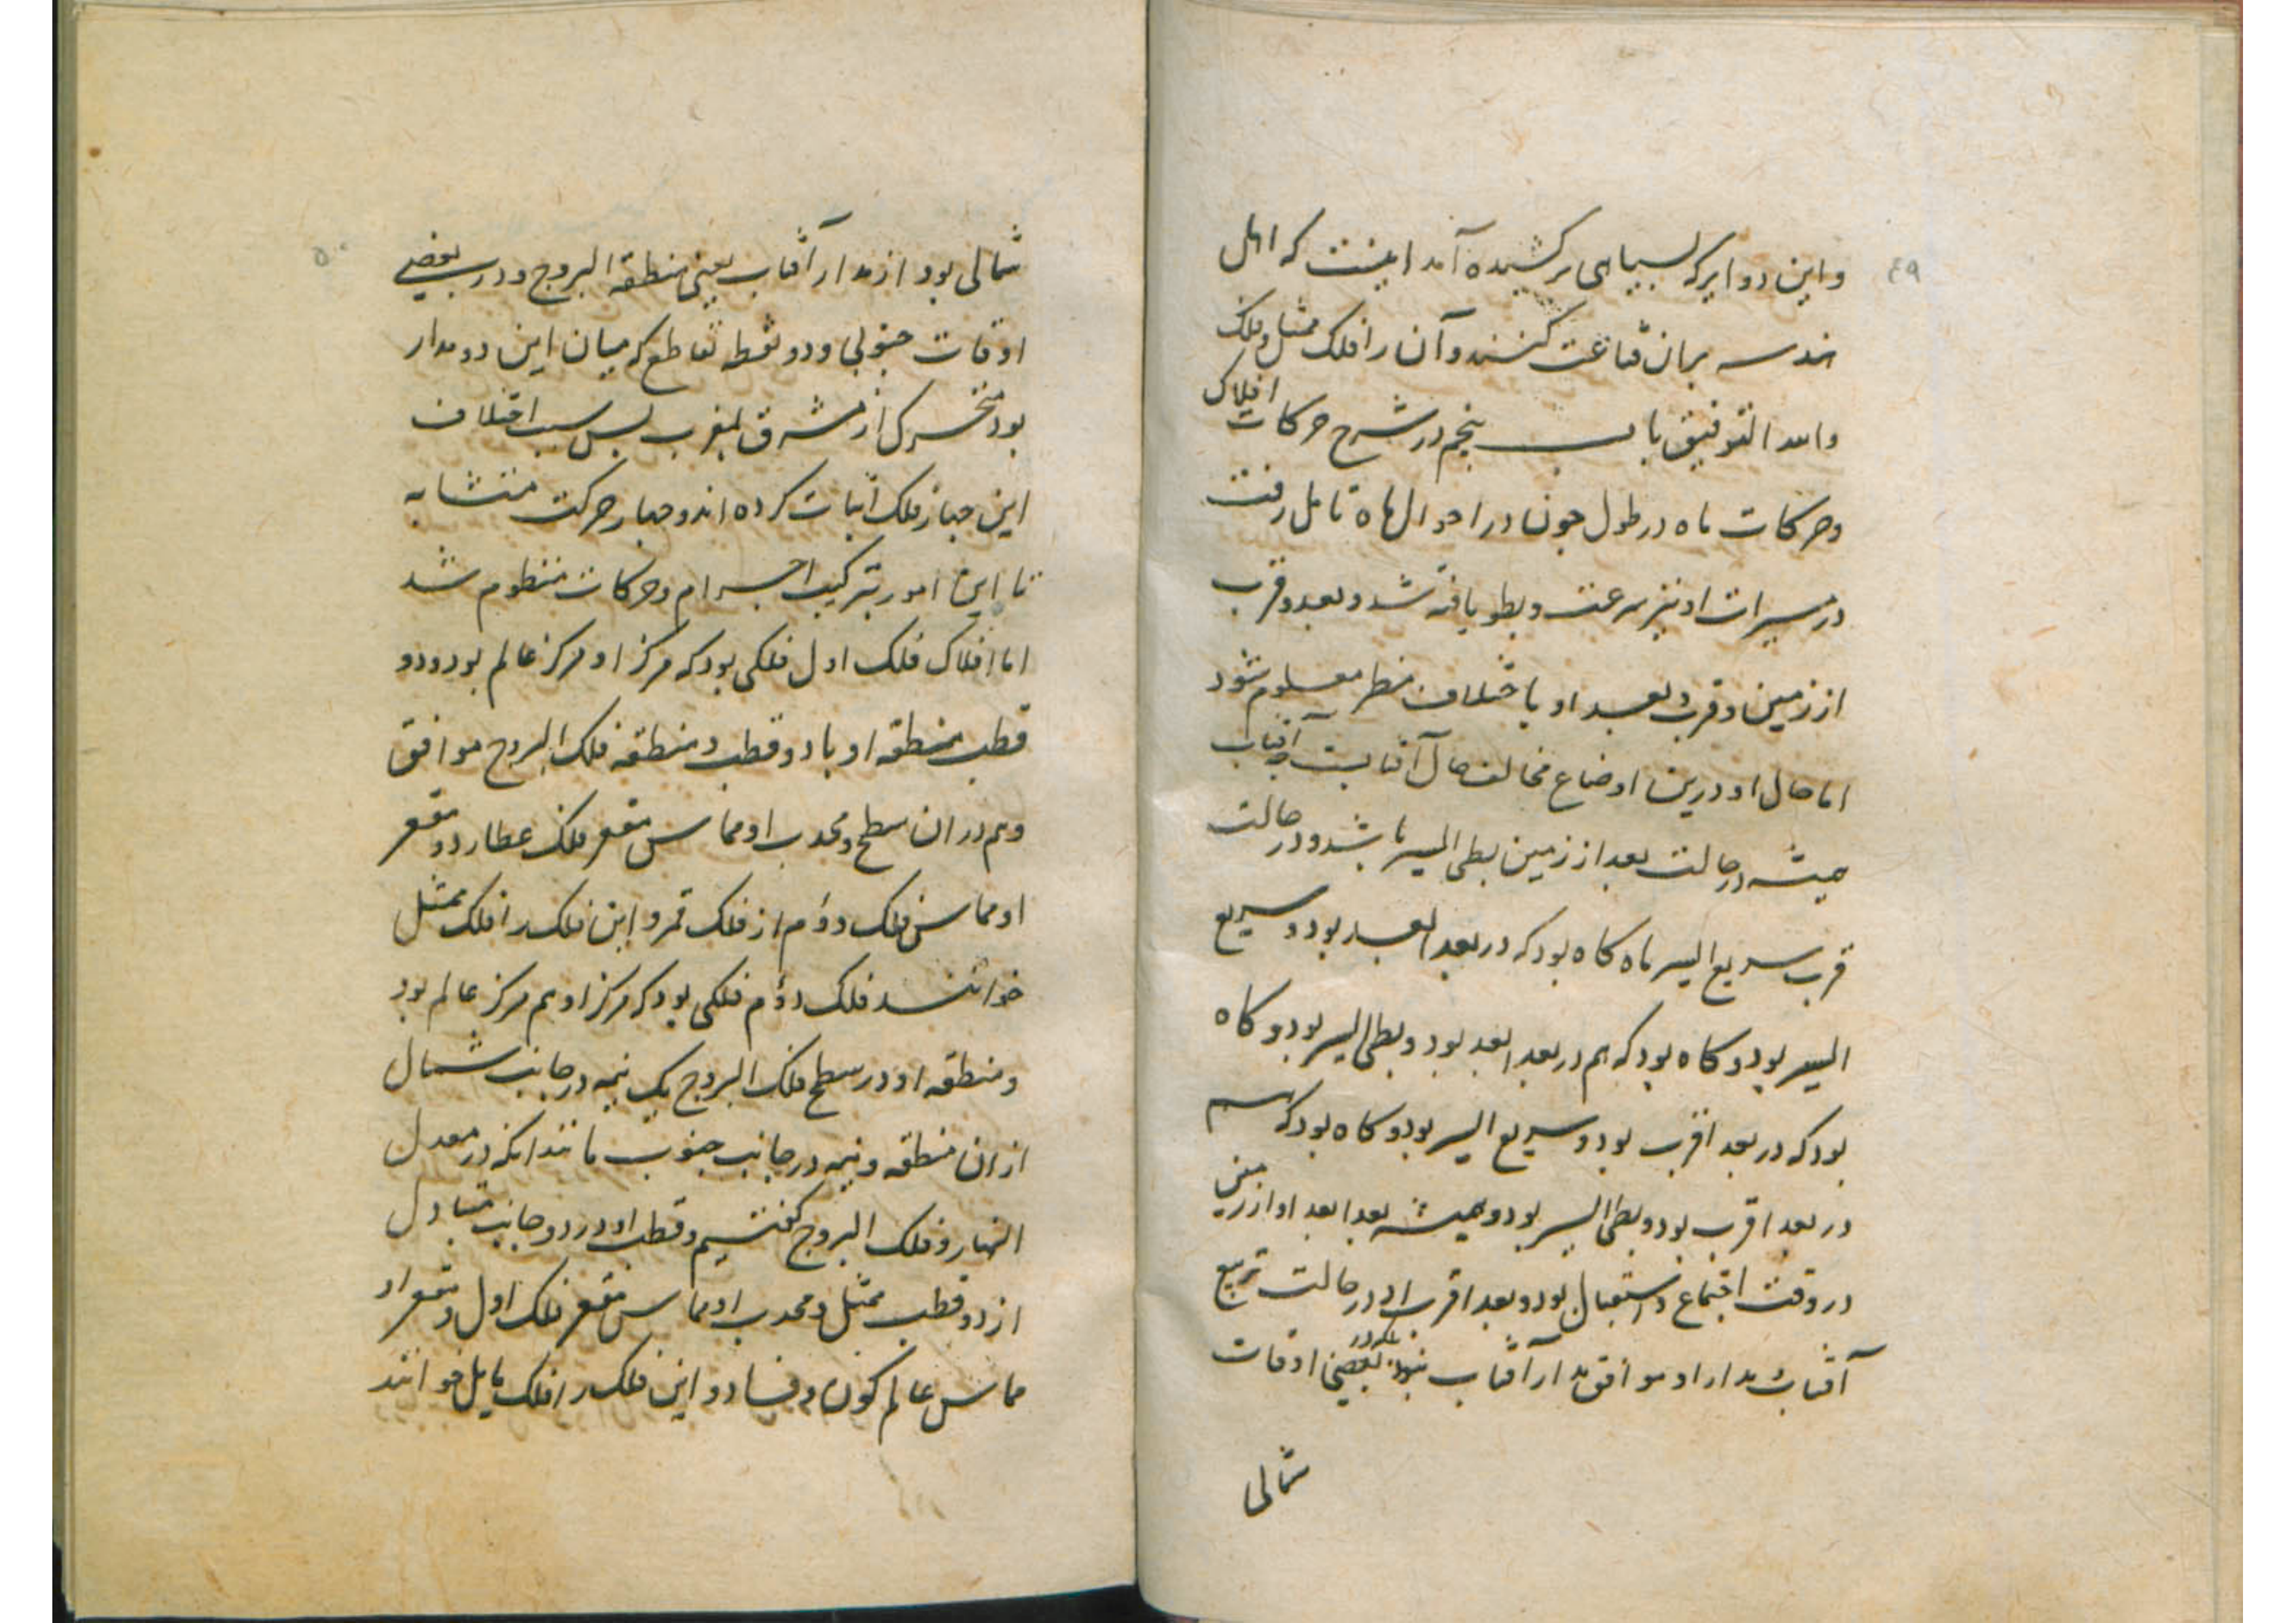 ۴۹
واین دوایر که بسیاهی بر کشیده آمد اینست که اهل
هندسه بران قناعت کنند و آن را فلک ممثل و فلک
والله التوفیق باب پنجم در شرح حرکات افلاک
وحرکات ماه در طول چون در احوال ماه تامل رفت
در مسیرات او نیز سرعت و بطو یافته شد و بعد و قرب
از زمین و قرب و بعد او باختلاف منظر معلوم شود
اما حال او درین اوضاع مخالف حال آفتابست چه آفتاب
همیشه در حالت بعد از زمین بطی السیر باشد و در حالت
قرب سریع السیر ماه کاه بود که در بعد ابعد بود و سریع
السیر بود و کاه بود که هم در بعد ابعد بود و بطی السیر بود و کاه
بود که در بعد اقرب بود و سریع السیر بود و کاه بود که هم
در بعد اقرب بود و بطی السیر بود و همیشه بعد ابعد او از زمین
در وقت اجتماع و استقبال بود و بعد اقرب او در حالت تربیع
آفتاب مدار او موافق مدار آفتاب نبود بلکه در بعضی اوقات
شمالی
۵۰
شمالی بود از مدار آفتاب یعنی منطقه البروج و در بعضی
اوقات جنوبی و دو نقطه تقاطع که میان این دو مدار
بود متحرک از مشرق بمغرب پس بسبب اختلاف
این چهار فلک اثبات کرده اند و چهار حرکت متشابه
تا این امور بترکیب اجرام و حرکات منظوم شد
اما افلاک فلک اول فلکی بود که مرکز او مرکز عالم بود و دو
قطب منطقه او با دو قطب و منطقه فلک البروج موافق
وهم در ان سطح و محدب او مماس مقعر فلک عطارد و مقعر
او مماس فلک دوم از فلک قمر و این فلک را فلک ممثل
خوانند فلک دوم فلکی بود که مرکز او هم مرکز عالم بود
و منطقه او در سطح فلک البروج یک نیمه در جانب شمال
از ان منطقه و نیمه در جانب جنوب مانند انکه در معدل
النهار و فلک البروج کفتیم و قطب او در دو جانب متبادل
از دو قطب ممثل و محدب او مماس مقعر فلک اول و مقعر او
مماس عالم کون و فساد و این فلک را فلک مایل خوانند